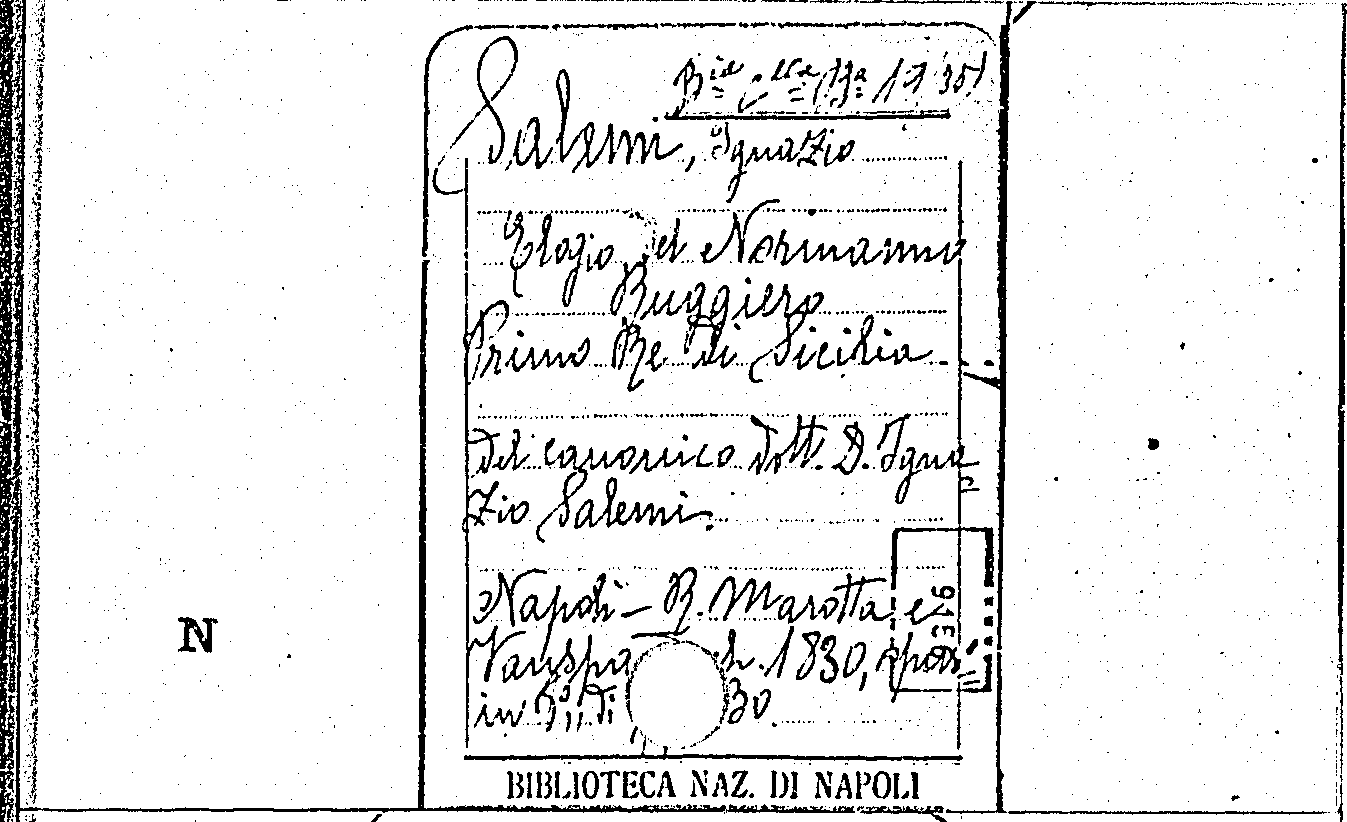 Salemi, Ignazio
Elogio del Normanno
Ruggiero
Primo Re di Sicilia.
Del canonico Dott. D. Igna
zio Salemi.
Napoli - R. Marotta e
Vanspa h. 1830,
in 8°, di 30.
N
BIBLIOTECA NAZ. DI NAPOLI